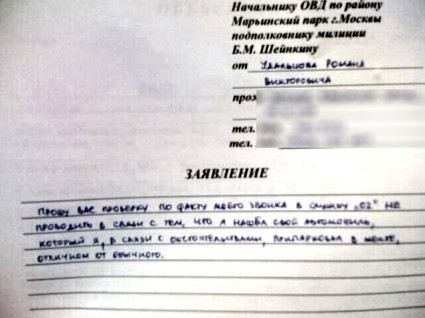 Начальнику ОВД по району
Марьинский парк г.Москвы
подполковнику милиции
Б.М. Шейнкину
от Удальцова Романа
Викторовича
прож
тел.
тел.
ЗАЯВЛЕНИЕ
Прошу Вас проверку по факту моего звонка в службу „02" не
проводить в связи с тем, что я нашёл свой автомобиль,
который я, в связи с обстоятельствами, припарковал в месте,
отличном от обычного.